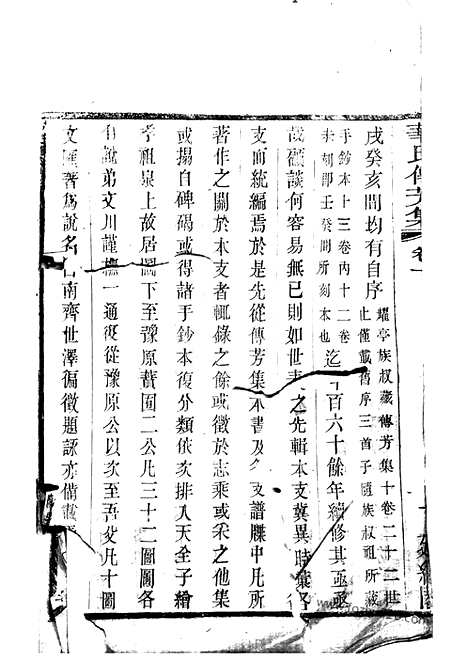 華氏傳芳集 卷一
戌癸亥間均有自序 燿亭族叔藏傳芳集十卷二十二世
止僅載舊序三首子隨族叔祖所藏
手鈔本十三卷內十二卷
未刻即壬癸間所刻本也 迄 百六十餘年續修其亟亟
哉顧談何容易無已則如世表之先輯本支冀異時彙各
支而統編焉於是先從傳芳集本書及 支譜牒中凡所
著作之關於本支者輒錄之餘或徵於志乘或采之他集
或搨自碑碣或得諸手鈔本復分類依次排入天全子繪
孝祖泉上故居圖下至豫原 園二公凡三十二圖圖各
有說弟文川謹橅一通復從豫原公以次至吾父凡十圖
文 著爲說名曰南齊世澤徧徵題詠亦備載